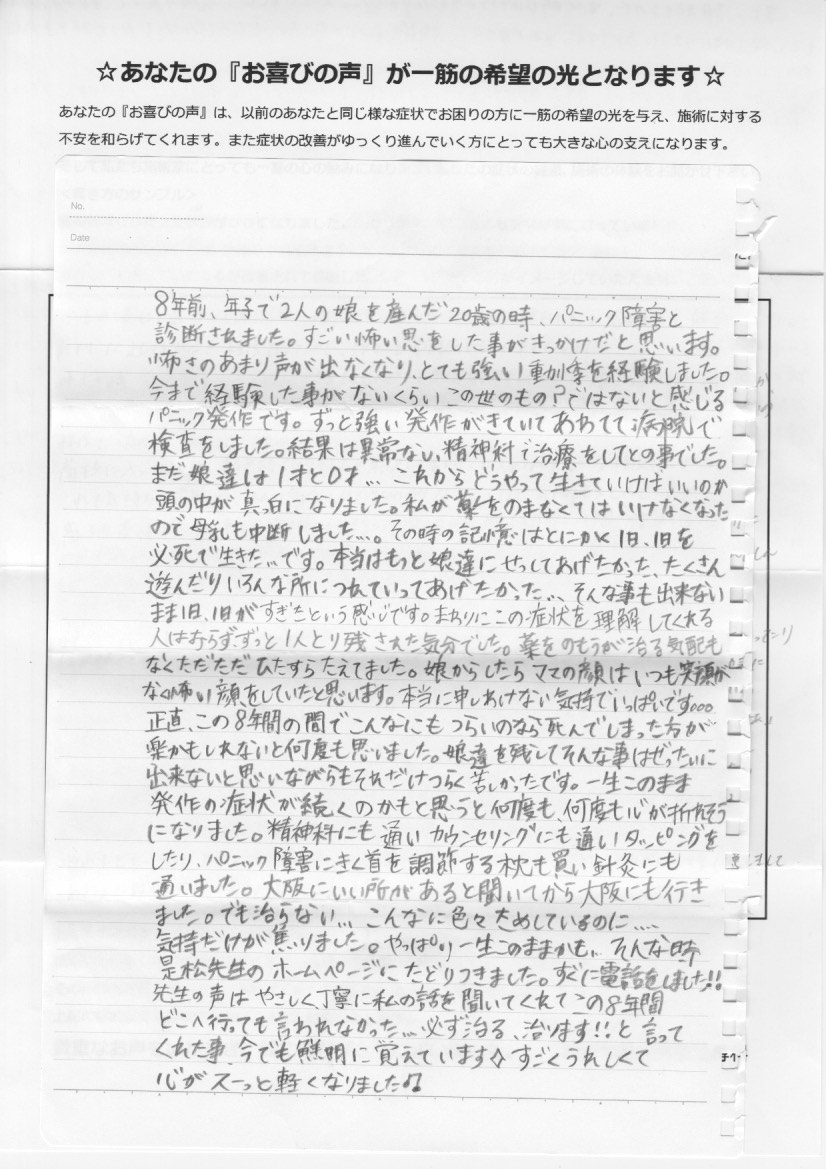 ☆あなたの『お喜びの声』が一筋の希望の光となります☆
あなたの『お喜びの声』は、以前のあなたと同じ様な症状でお困りの方に一筋の希望の光を与え、施術に対する
不安を和らげてくれます。また症状の改善がゆっくり進んでいく方にとっても大きな心の支えになります。
No.
Date
8年前、年子で2人の娘を産んだ20歳の時、パニック障害と
診断されました。すごい怖い思をした事がきっかけだと思います。
怖さのあまり声が出なくなり、とても強い動悸を経験しました。
今まで経験した事がないくらいこの世のもの?ではないと感じる
パニック発作です。ずっと強い発作がきていてあわてて病院で
検査をしました。結果は異常ない、精神科で治療をしてとの事でした。
まだ娘達は1才と0才… これからどうやって生きていけばいいのか
頭の中が真っ白になりました。私が薬をのまなくてはいけなくなった
ので母乳も中断しました…。その時の記憶はとにかく1日、1日を
必死で生きた…です。本当はもっと娘達にせってしてあげたかった、たくさん
遊んだりいろんな所につれていってあげたかった… そんな事も出来ない
まま1日、1日がすぎたという感じです。まわりにこの症状を理解してくれる
人はおらず、ずっと1人とり残された気分でした。薬をのもうが治る気配も
なくただただひたすらたえてました。娘からしたらママの顔はいつも笑顔が
なく怖い顔をしていたと思います。本当に申しわけない気持でいっぱいです。。。
正直、この8年間の間でこんなにもつらいのなら死んでしまった方が
楽かもしれないと何度も思いました。娘達を残してそんな事はぜったいに
出来ないと思いながらもそれだけつらく苦しかったです。一生このまま
発作の症状が続くのかもと思うと何度も、何度も心が折れそう
になりました。精神科にも通いカウンセリングにも通いタッピングを
したり、パニック障害にきく首を調節する枕も買い針灸にも
通いました。大阪にいい所があると聞いてから大阪にも行き
ました。でも治らない… こんなに色々ためしているのに….
気持だけが焦りました。やっぱり一生このままかも… そんな時
是松先生のホームページにたどりつきました。すぐに電話をしました!!
先生の声はやさしく、丁寧に私の話を聞いてくれてこの8年間
どこへ行っても言われなかった… 必ず治る、治ります!!と言って
くれた事、今でも鮮明に覚えています☆すごくうれしくて
心がスーっと軽くなりました♫